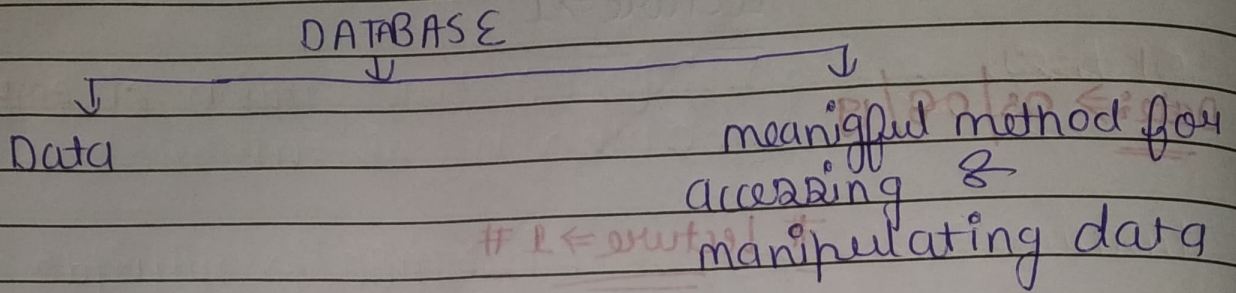 DATABASE
Data
meanigful method for
accessing &
manipulating data